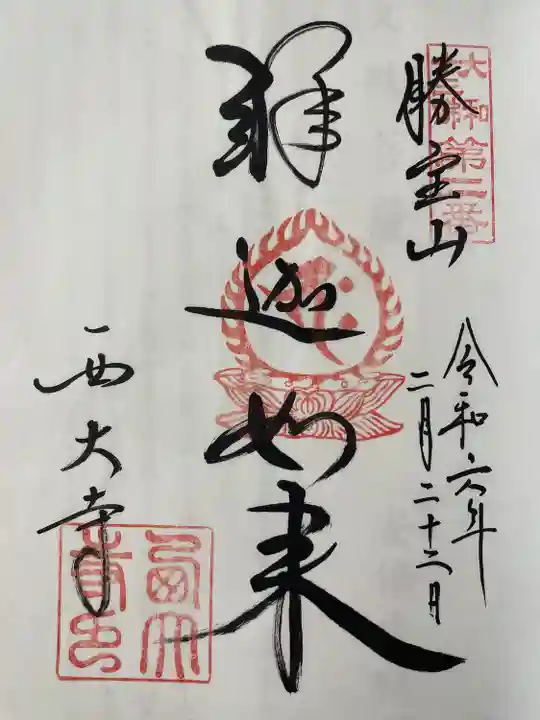 大和
第二番
勝宝山
令和六年
二月二十三日
釋迦如来
西大寺
西大
寺印